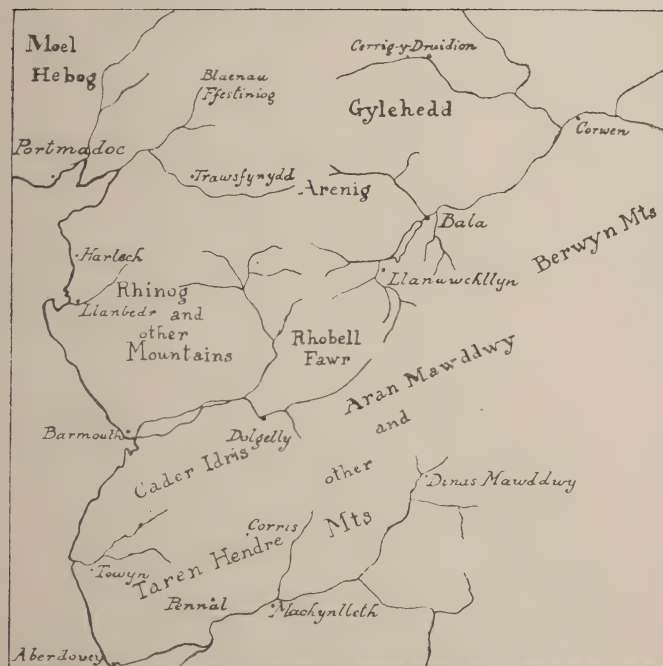 Moel
Hebog
Cerrig-y-Druidion
Blaenau
Ffestiniog
Gylehedd
Corwen
Portmadoc
Trawsfynydd
Arenig
Bala
Berwyn Mts
Harlech
Llanuwchllyn
Rhinog
Llanbedr and
other
Mountains
Rhobell
Fawr
Aran Mawddwy
and
other
Mts
Barmouth
Dolgelly
Cader Idris
Dinas Mawddwy
Corris
Taren Hendre
Towyn
Pennal
Machynlleth
Aberdovey